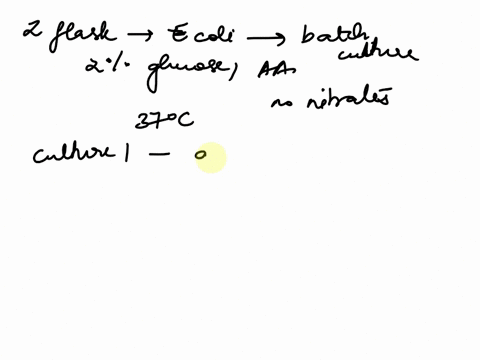 2 flask → E coli → batch culture
2% glucose, AA
no nitrates
37°C
culture 1 — o